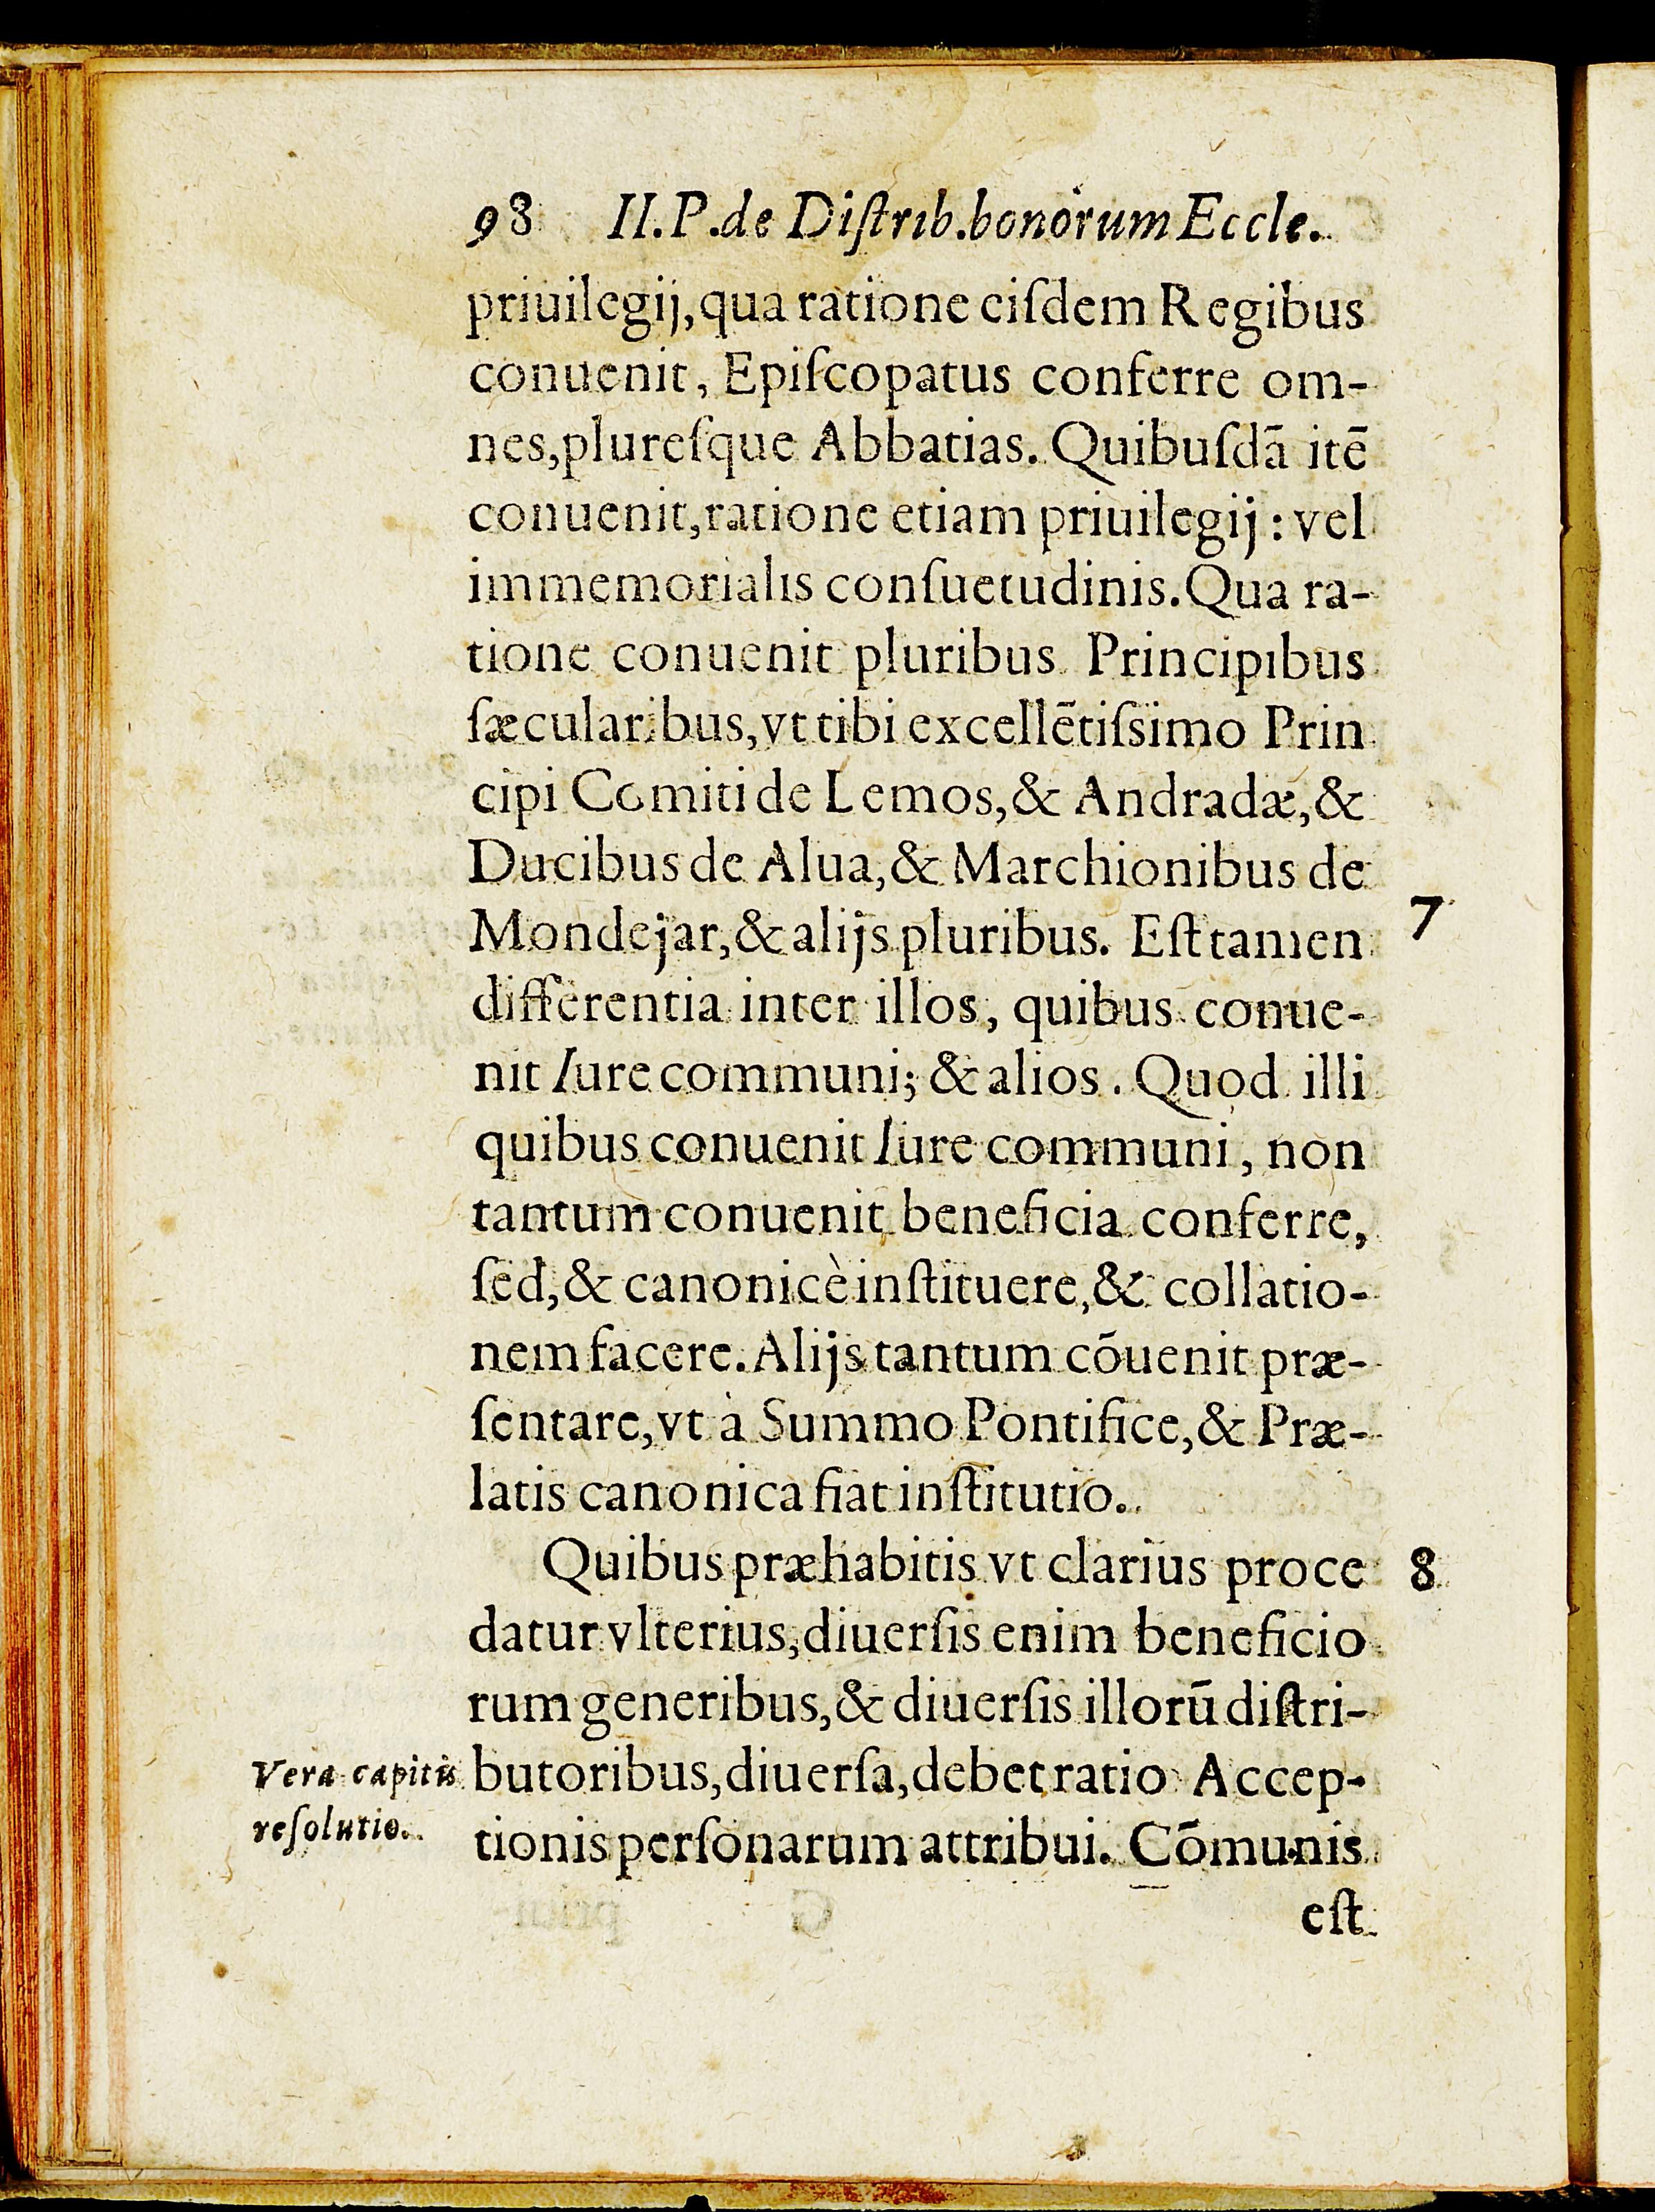 98 II.P.de Diſtrib.bonorum Eccle.
priuilegij,qua ratione eiſdem Regibus
conuenit, Epiſcopatus conferre om-
nes,plureſque Abbatias. Quibuſdā itē
conuenit,ratione etiam priuilegij: vel
immemorialis conſuetudinis.Qua ra-
tione conuenit pluribus Principibus
ſæcularibus,vt tibi excellētiſsimo Prin
cipi Comiti de Lemos,& Andradæ,&
Ducibus de Alua,& Marchionibus de
Mondejar,& alijs pluribus. Eſt tamen 7
differentia inter illos, quibus conue-
nit Iure communi; & alios. Quod illi
quibus conuenit Iure communi, non
tantum conuenit beneficia conferre,
ſed,& canonicè inſtituere,& collatio-
nem facere.Alijs tantum cōuenit præ-
ſentare,vt à Summo Pontifice,& Præ-
latis canonica fiat inſtitutio.
Quibus præhabitis vt clarius proce 8
datur vlterius,diuerſis enim beneficio
rum generibus,& diuerſis illorū diſtri-
Vera capitis butoribus,diuerſa,debet ratio Accep-
reſolutio. tionis perſonarum attribui. Cōmunis
eſt